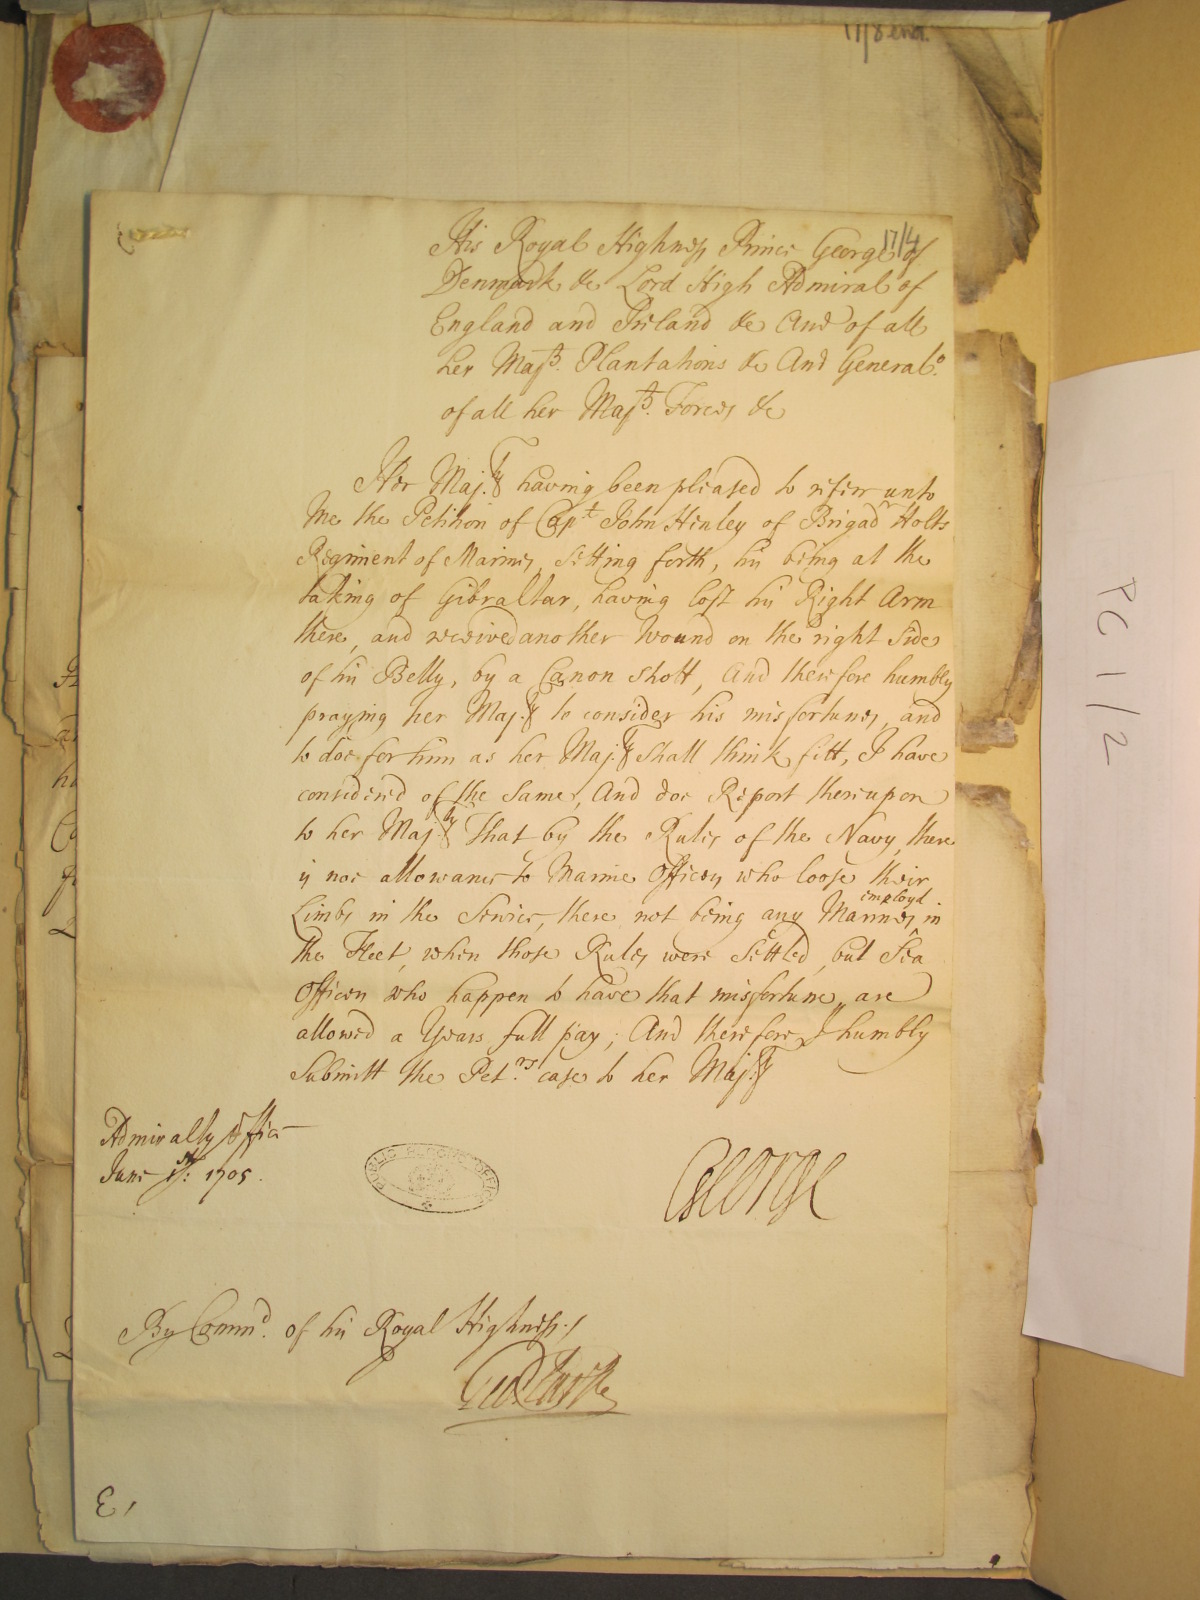 17/8 end.
17/4
His Royal Highness Prince George of
Denmark &c Lord High Admiral of
England and Ireland &c And of all
her Majts. Plantations &c And General.o
of all her Majts. Forces &c
Her Maj.ty having been pleased to referr unto
Me the Petition of Capt John Henley of Brigadr Holts
Regiment of Marines, Setting forth, his being at the
taking of Gibraltar, having lost his Right Arm
there, and received another Wound on the right Side
of his Belly, by a Canon Shott, And therefore humbly
praying her Maj.ty to consider his misfortunes, and
to doe for him as her Maj.ty Shall think fitt, I have
considered of the Same, And doe Report thereupon
to her Maj.ty That by the Rules of the Navy, there
is noe allowance to Marine Officers who loose their
Limbs in the Service, there not being any Marines employd in
the Fleet, when those Rules were Settled, but Sea
Officers who happen to have that misfortune, are
allowed a Years full pay; And therefore I humbly
Submitt the Pet.rs case to her Maj.ty
Admiralty Office
June 1st: 1705.
PUBLIC RECORD OFFICE
George
By Comm.d of his Royal Highness./
Geo: Clarke
E 1
PC 1/2